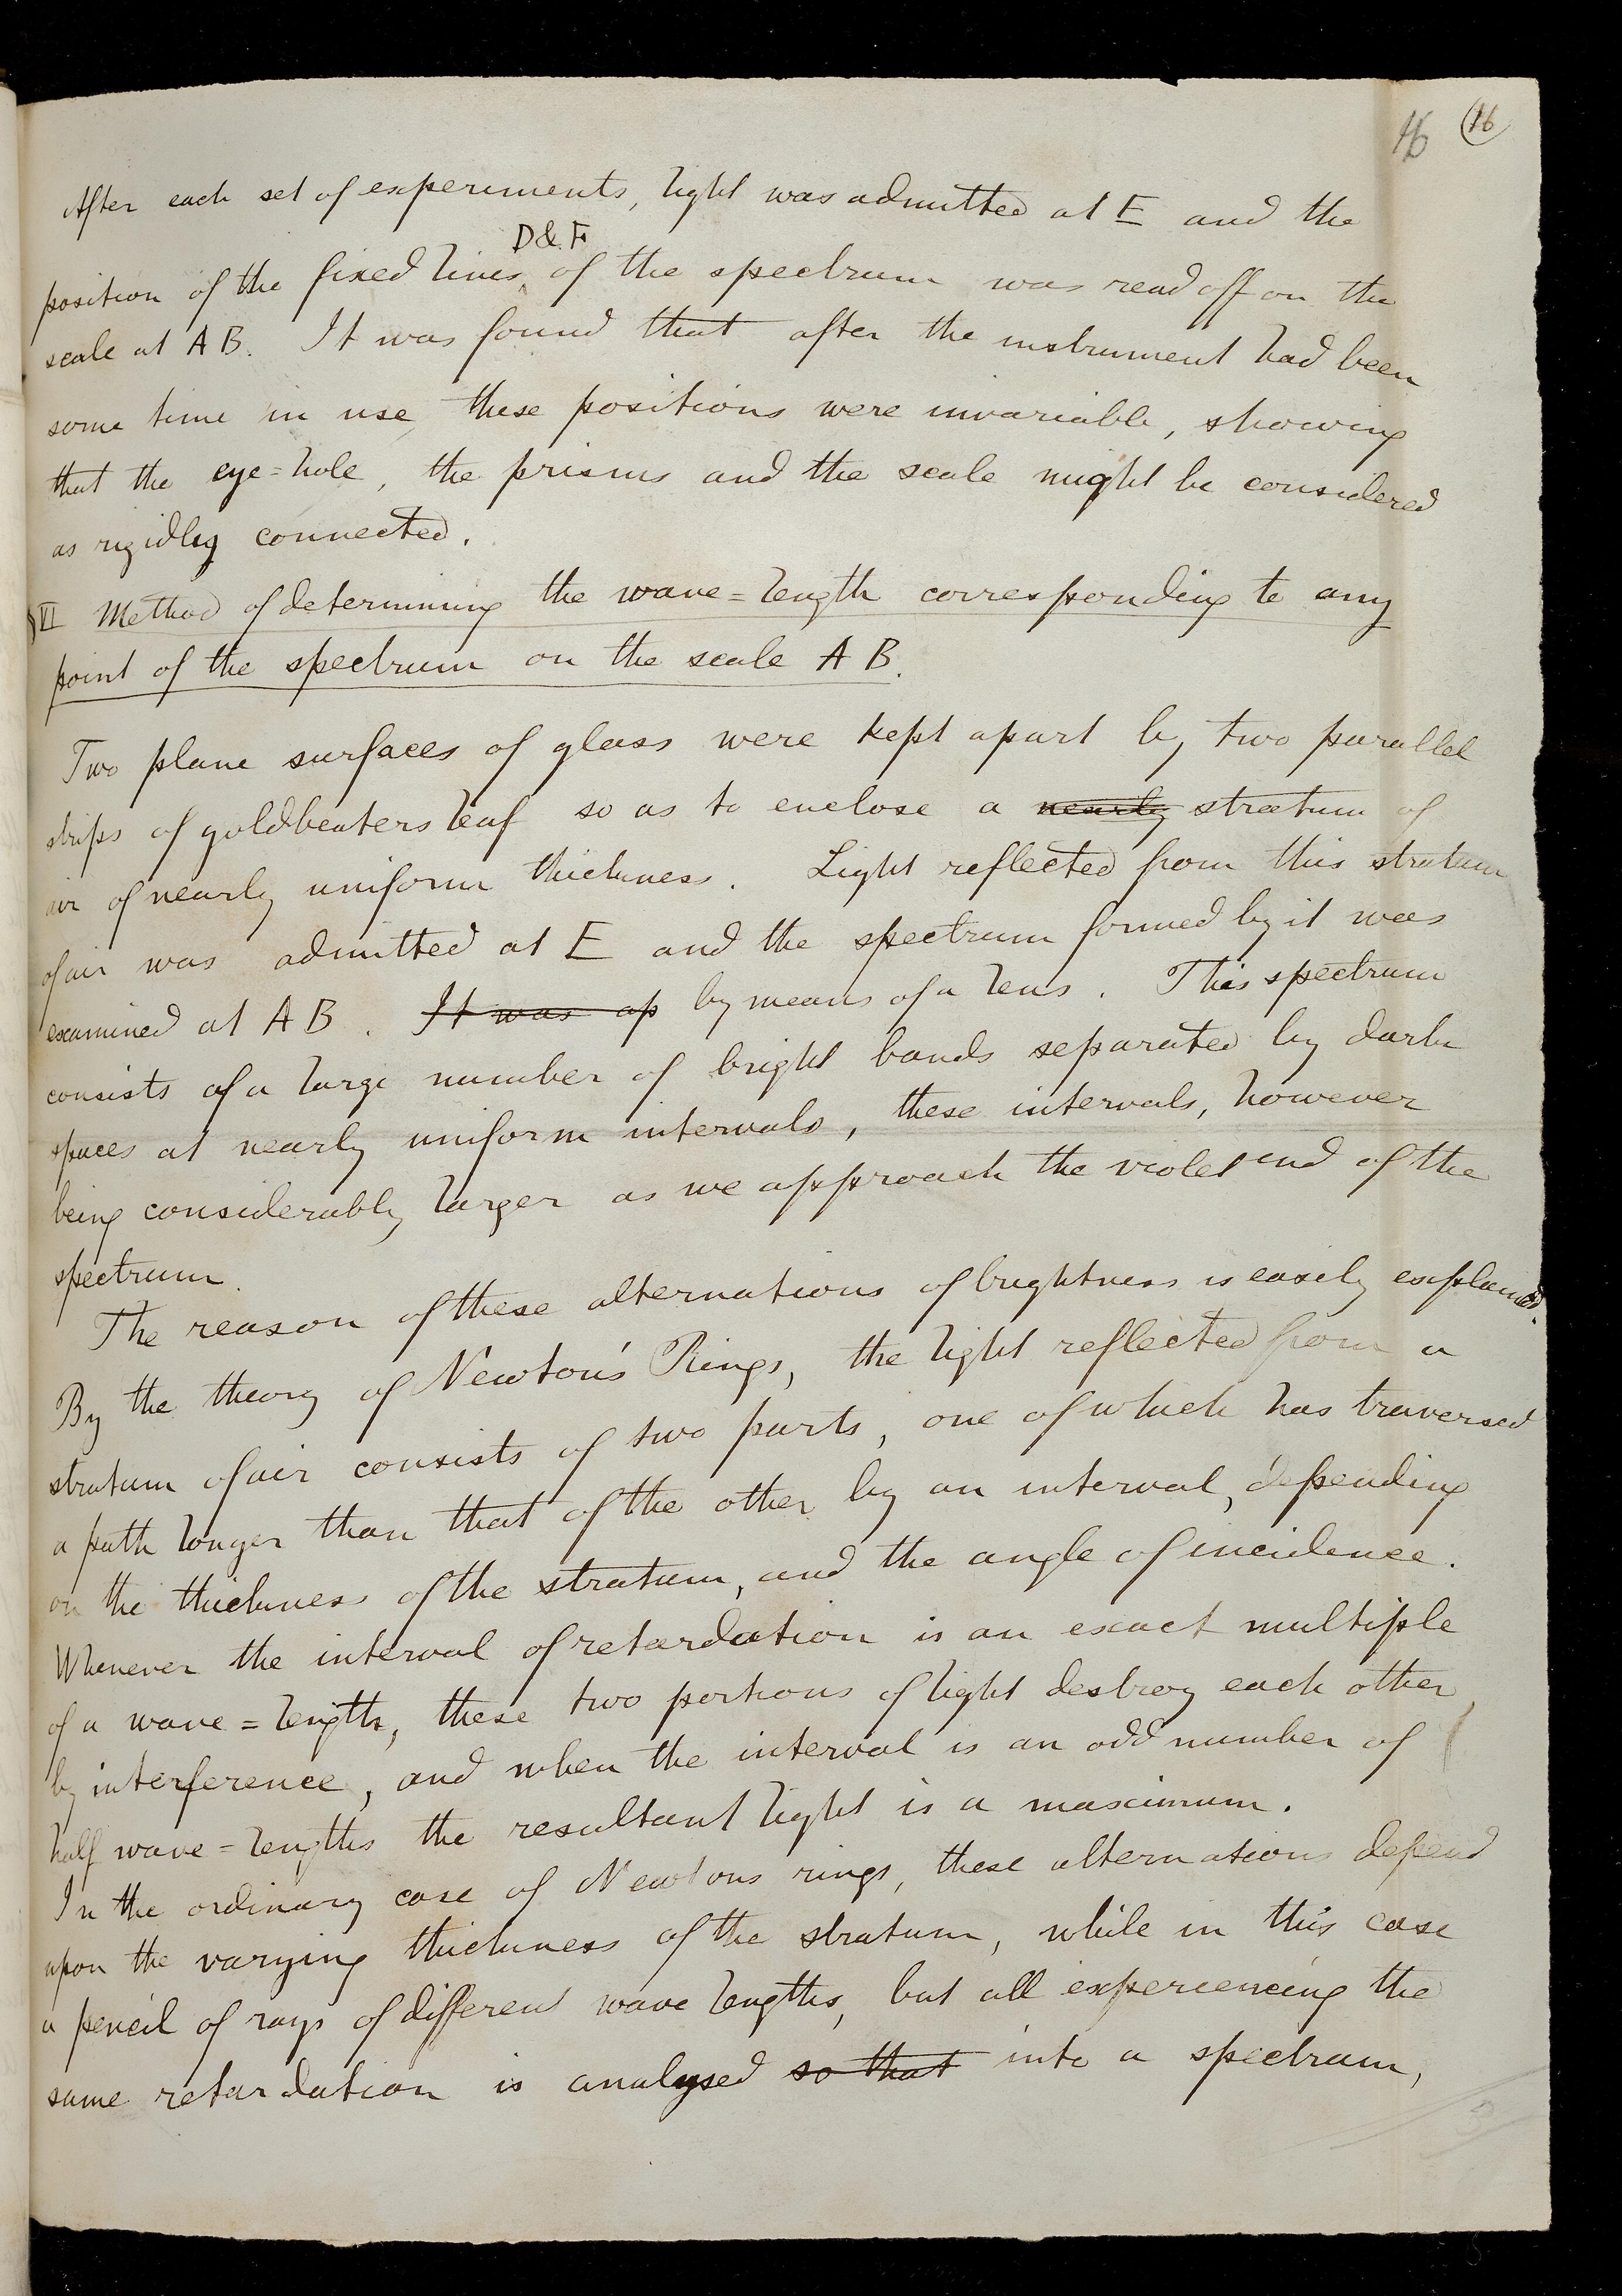 16 (16)
After each set of experiments, light was admitted at E and the
D & F
position of the fixed lines, of the spectrum was read off on the
scale at A B. It was found that after the instrument had been
some time in use, these positions were invariable, showing
that the eye=hole, the prisms and the scale might be considered
as rigidly connected.
§VI Method of determining the wave=length corresponding to any
point of the spectrum on the scale A B.
Two plane surfaces of glass were kept apart by two parallel
strips of goldbeaters leaf so as to enclose a nearly stratum of
air of nearly uniform thickness. Light reflected from this stratum
of air was admitted at E and the spectrum formed by it was
examined at A B. It was ap by means of a lens. This spectrum
consists of a large number of bright bands separated by dark
spaces at nearly uniform intervals, these intervals, however
being considerably larger as we approach the violet end of the
spectrum.
The reason of these alternations of brightness is easily explained.
By the theory of Newton's Rings, the light reflected from a
stratum of air consists of two parts, one of which has traversed
a path longer than that of the other by an interval, depending
on the thickness of the stratum, and the angle of incidence.
Whenever the interval of retardation is an exact multiple
of a wave=length, these two portions of light destroy each other
by interference, and when the interval is an odd number of
half wave=lengths the resultant light is a maximum.
In the ordinary case of Newtons rings, these alternations depend
upon the varying thickness of the stratum, while in this case
a pencil of rays of different wave lengths, but all experiencing the
same retardation is analysed so that into a spectrum,